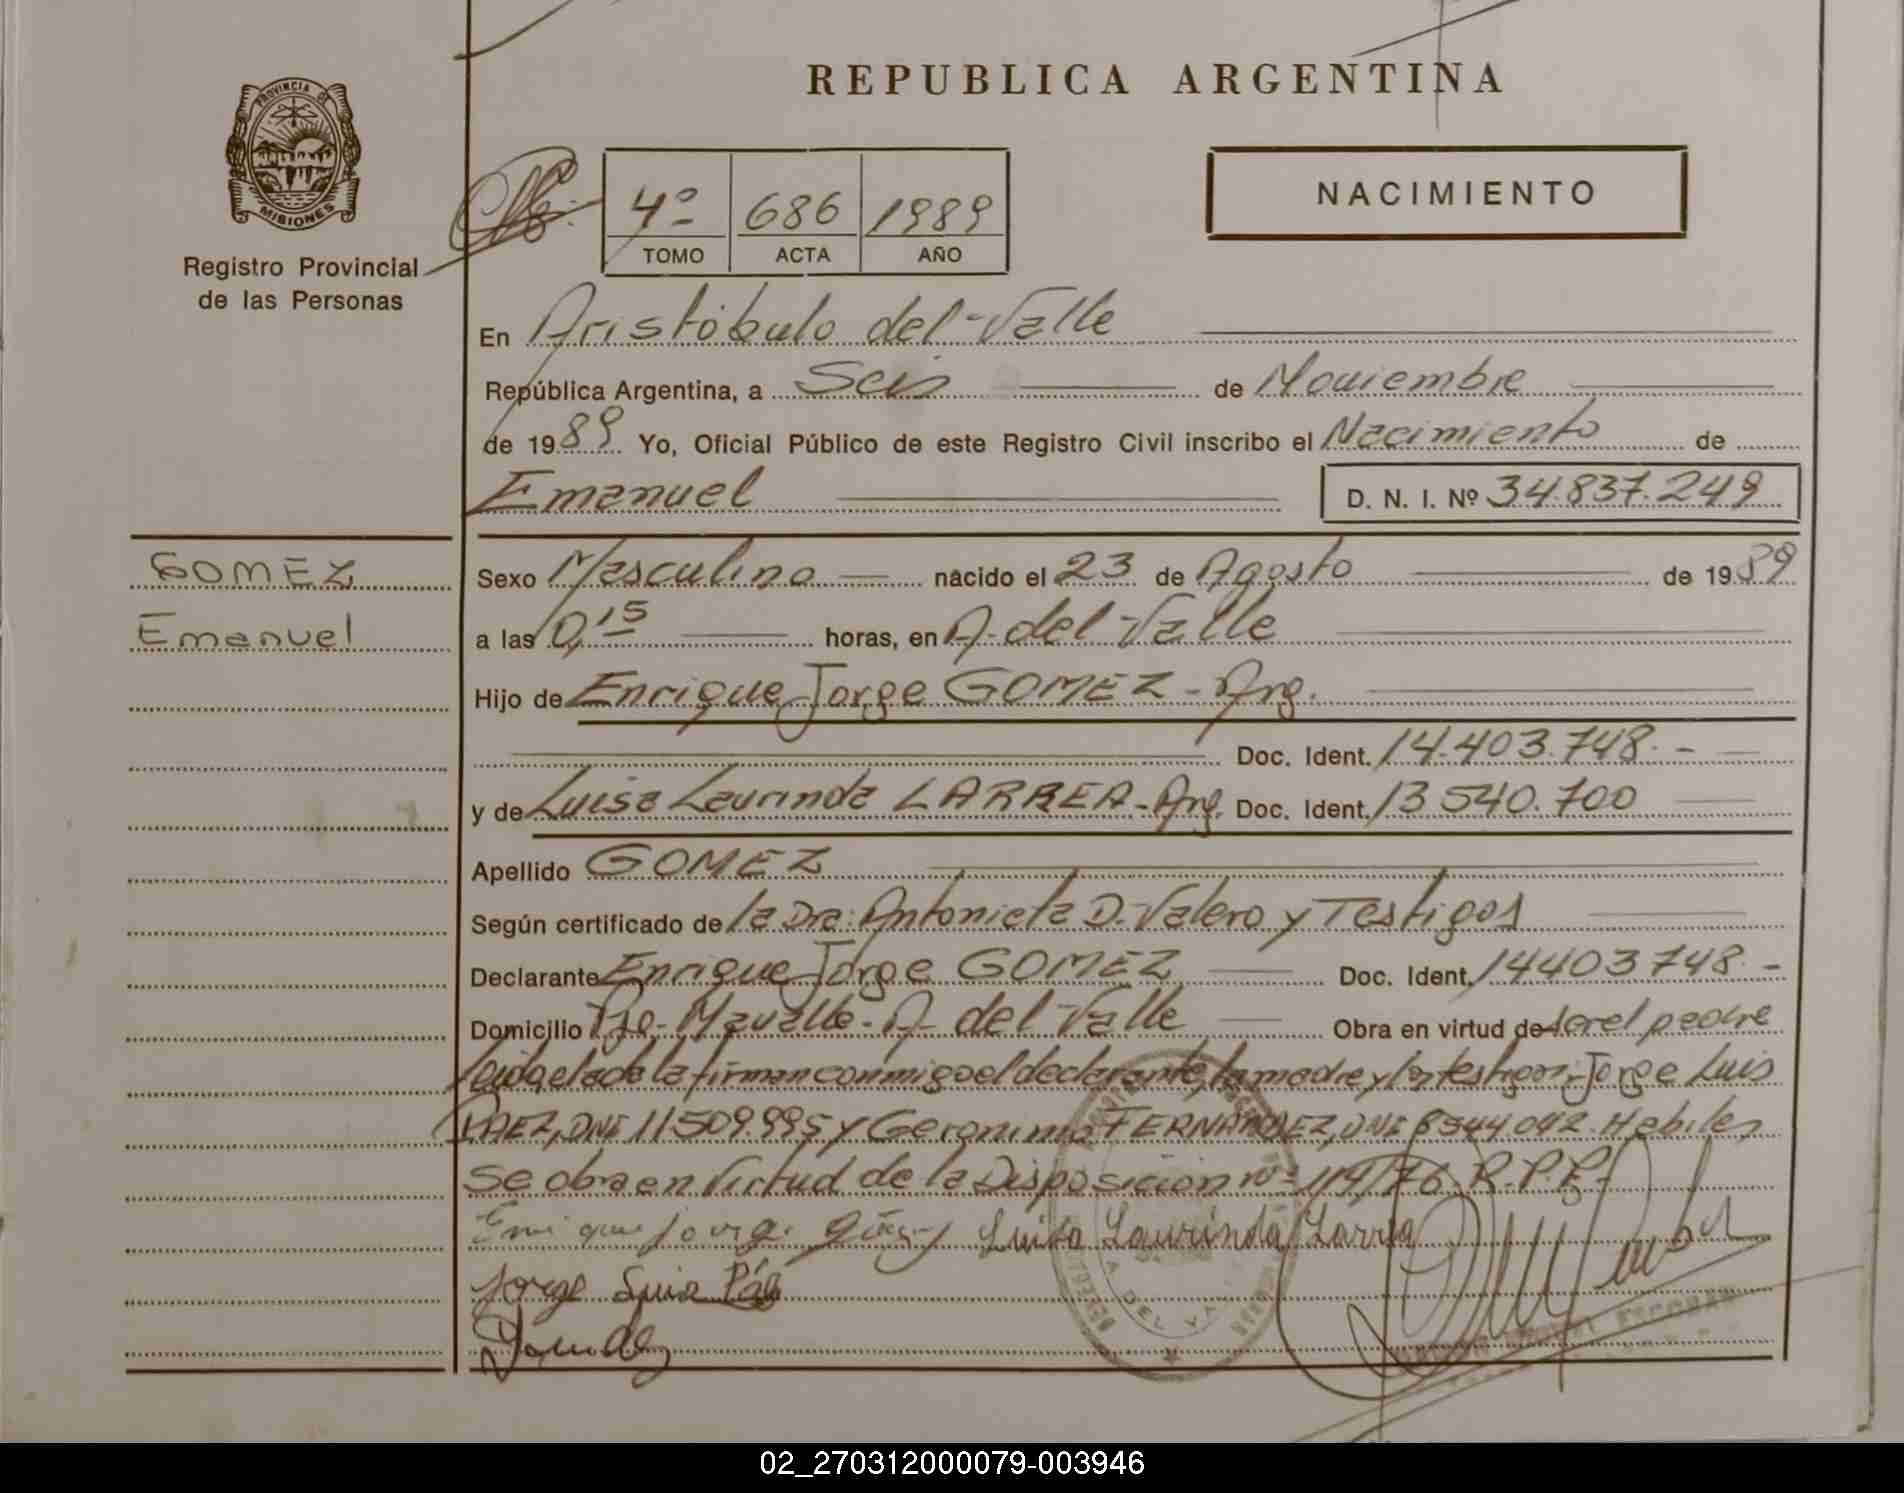 REPUBLICA ARGENTINA
PROVINCIA DE
MISIONES
Registro Provincial
de las Personas
4º 686 1989
TOMO ACTA AÑO
NACIMIENTO
En Aristóbulo del Valle
República Argentina, a Seis de Noviembre
de 1989 Yo, Oficial Público de este Registro Civil inscribo el Nacimiento de
Emanuel D. N. I. Nº 34.837.249
GOMEZ
Emanuel
Sexo Masculino nacido el 23 de Agosto de 1989
a las 0,15 horas, en A. del Valle
Hijo de Enrique Jorge GOMEZ - Arg.
Doc. Ident. 14.403.748.-
y de Luisa Laurinda LARREA - Arg. Doc. Ident. 13.540.700
Apellido GOMEZ
Según certificado de la Dra: Antonieta D. Valero y Testigos
Declarante Enrique Jorge GOMEZ Doc. Ident. 14403748.-
Domicilio A. del Valle Obra en virtud de ser el padre
leida el acta la firman conmigo el declarante, la madre y los testigos, Jorge Luis
PAEZ, DNI 11509.995 y Geronimo FERNANDEZ, DNI 8344.042. Habiles
Se obra en Virtud de la Disposicion nº 114/76. R.P.P.-
Enrique jorge Luisa Laurinda Larrea
Jorge Luis Páez
DEL VALLE
02_270312000079-003946